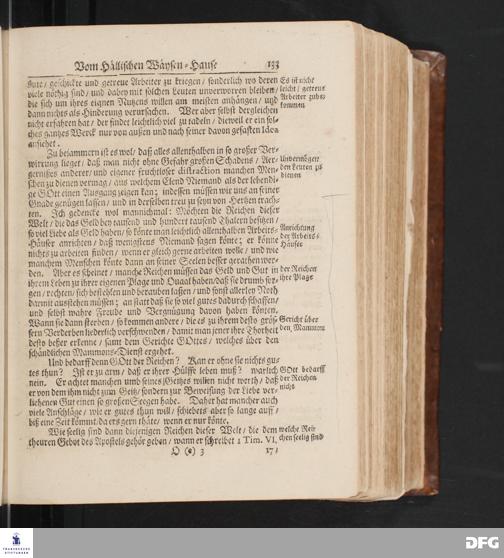 Vom Hällischen Wäysen-Hause 133
gute / geschickte und getreue Arbeiter zu kriegen / sonderlich wo deren
viele nöthig sind / und dabey mit solchen Leuten unverworren bleiben /
die sich um ihres eignen Nutzens willen am meisten anhängen / und
dann nichts als Hinderung verursachen. Wer aber selbst dergleichen
nicht erfahren hat / der findet leichtlich viel zu tadeln / dieweil er ein sol-
ches gantzes Werck nur von außen und nach seiner davon gefasten Idea
ansiehet.
Es ist nicht
leicht / getreue
Arbeiter zube-
kommen
Zu bejammern ist es wol / daß alles allenthalben in so großer Ver-
wirrung lieget / daß man nicht ohne Gefahr großen Schadens / Aer-
gernißes anderer / und eigener fruchtloser distraction manchen Men-
schen zu dienen vermag / aus welchem Elend Niemand als der lebendi-
ge GOtt einen Ausgang zeigen kan; indessen müssen wir uns an seiner
Gnade genügen lassen / und in derselben treu zu seyn von Hertzen trach-
ten. Ich gedencke wol mannichmal: Möchten die Reichen dieser
Welt / die das Geld bey tausend und hundert tausend Thalern besitzen /
so viel Liebe als Geld haben / so könte man leichtlich allenthalben Arbeits-
Häuser anrichten / daß wenigstens Niemand sagen könte; er könne
nichts zu arbeiten finden / wenn er gleich gerne arbeiten wolle / und wie
manchem Menschen könte dann an seiner Seelen besser gerathen wer-
den. Aber es scheinet / manche Reichen müssen das Geld und Gut in
ihrem Leben zu ihrer eigenen Plage und Quaal haben / daß sie drum sor-
gen / rechten / sich bestehlen und berauben lassen / und sonst allerley Noth
damit ausstehen müssen; an statt daß sie so viel gutes dadurch schaffen /
und selbst wahre Freude und Vergnügung davon haben könten.
Wann sie dann sterben / so kommen andere / die es zu ihrem desto gröſ-
sern Verderben liederlich verschwenden / damit man jener ihre Thorheit
desto beßer erkenne / samt dem Gerichte GOttes / welches über den
schändlichen Mammons-Dienst ergehet.
Unvermögen
den Leuten zu
dienen
Anrichtung
der Arbeits-
Häuser
der Reichen
ihre Plage
Gericht über
den Mammon
Und bedarff denn GOtt der Reichen? Kan er ohne sie nichts gu-
tes thun? Ist er zu arm / daß er ihrer Hülffe leben muß? warlich
nein. Er achtet manchen umb seines Geitzes willen nicht werth / daß
er von dem ihm nicht zum Geitz / sondern zur Beweisung der Liebe ver-
liehenen Gut einen so großen Segen habe. Daher hat mancher auch
viele Anschläge / wie er gutes thun will / schiebets aber so lange auff /
biß eine Zeit kömmt / da ers gern thäte / wenn er nur könte.
GOtt bedarff
der Reichen
nicht
Wie seelig sind dann diejenigen Reichen dieser Welt / die dem
theuren Gebot des Apostels gehör geben / wann er schreibet 1 Tim. VI,
welche Rei-
chen seelig sind
17 /